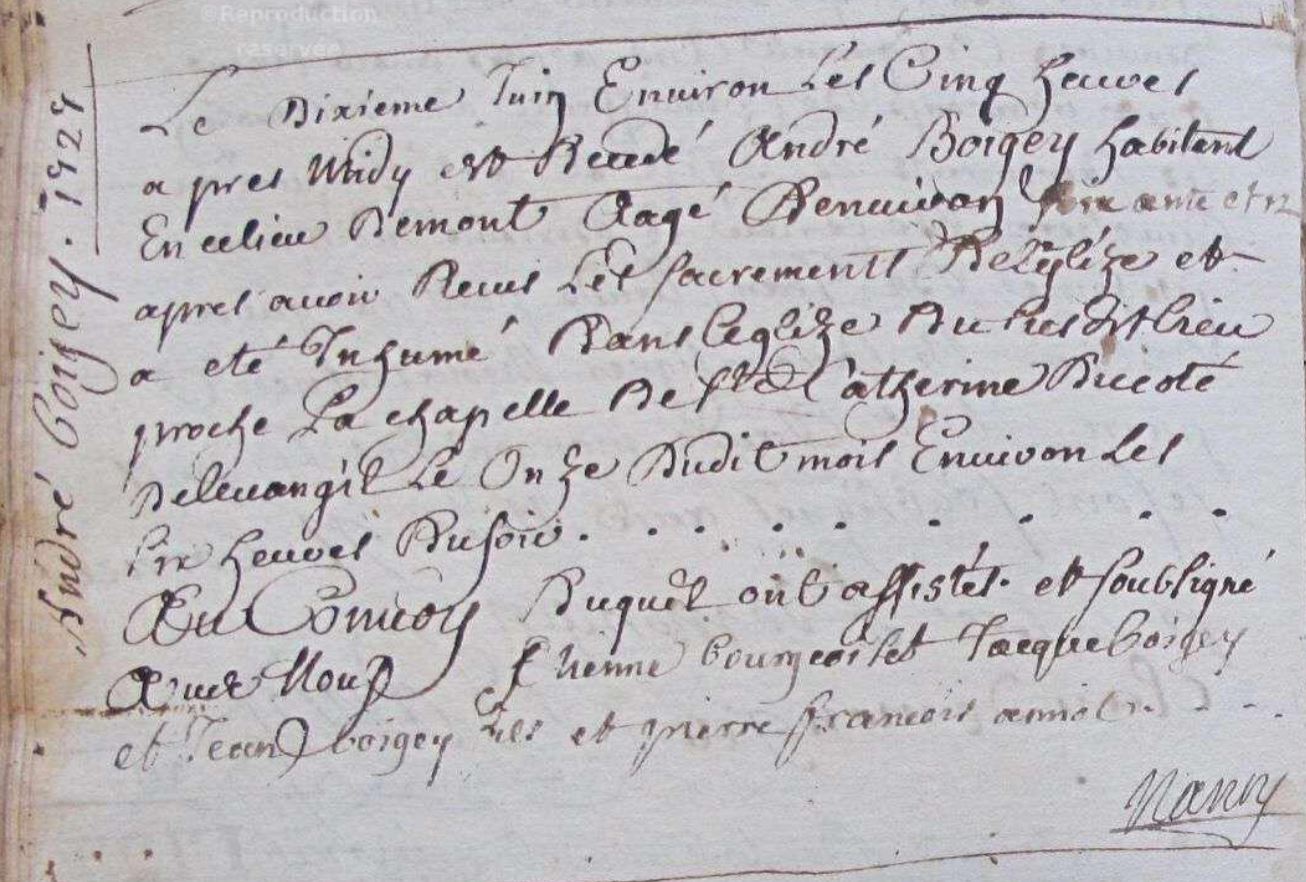 ©Reproduction
reservée
André boigey. 1727
Le Dixieme Juin Enuiron Les Cinq heures
a pres Midy est Decedé André Boigey habitant
En ce lieu Demont Aagé Denuiron
apres auoir Recus Les sacrements De leglize et
a eté Inhumé Dans leglize Du susdit lieu
proche La chapelle De ste Catherine Ducoté
Deleuangil Le Onze Dudit mois Enuiron Les
six heures Dusoir . . . . . . . .
Au Conuoy Duquel ont assistés et soubsigné
Auec Nous Etienne bourgeois et Jacque boigey
et Jean boigey et pierre francois